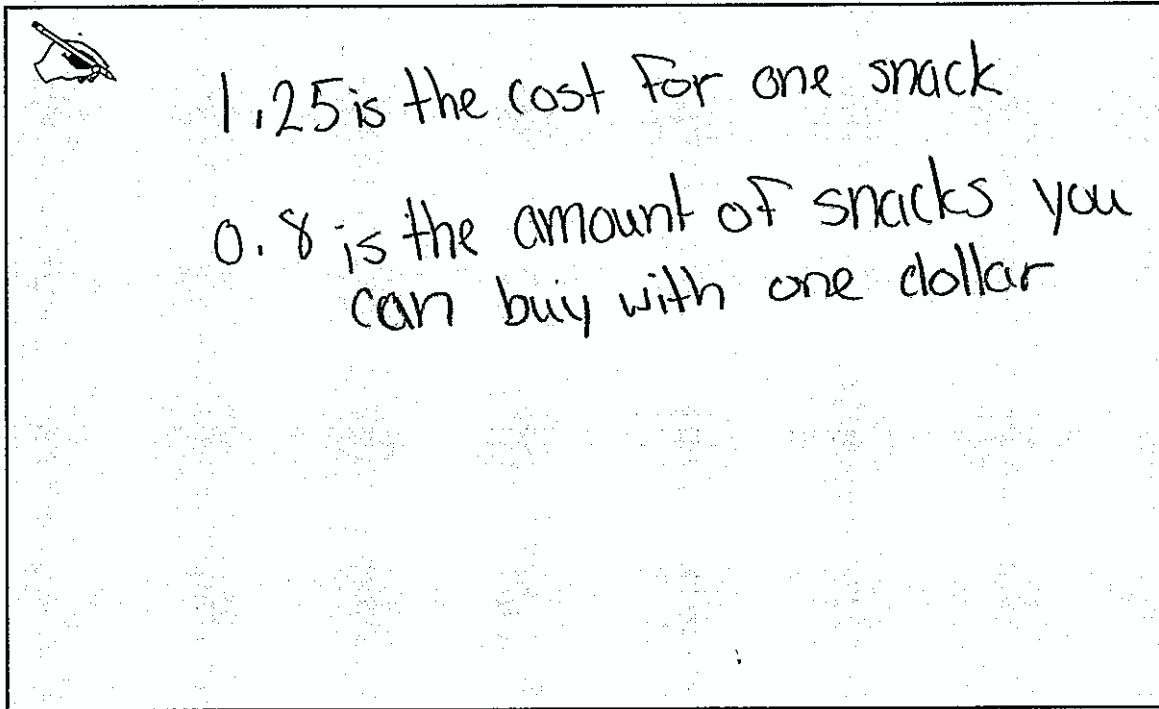 1.25 is the cost for one snack
0.8 is the amount of snacks you
can buy with one dollar